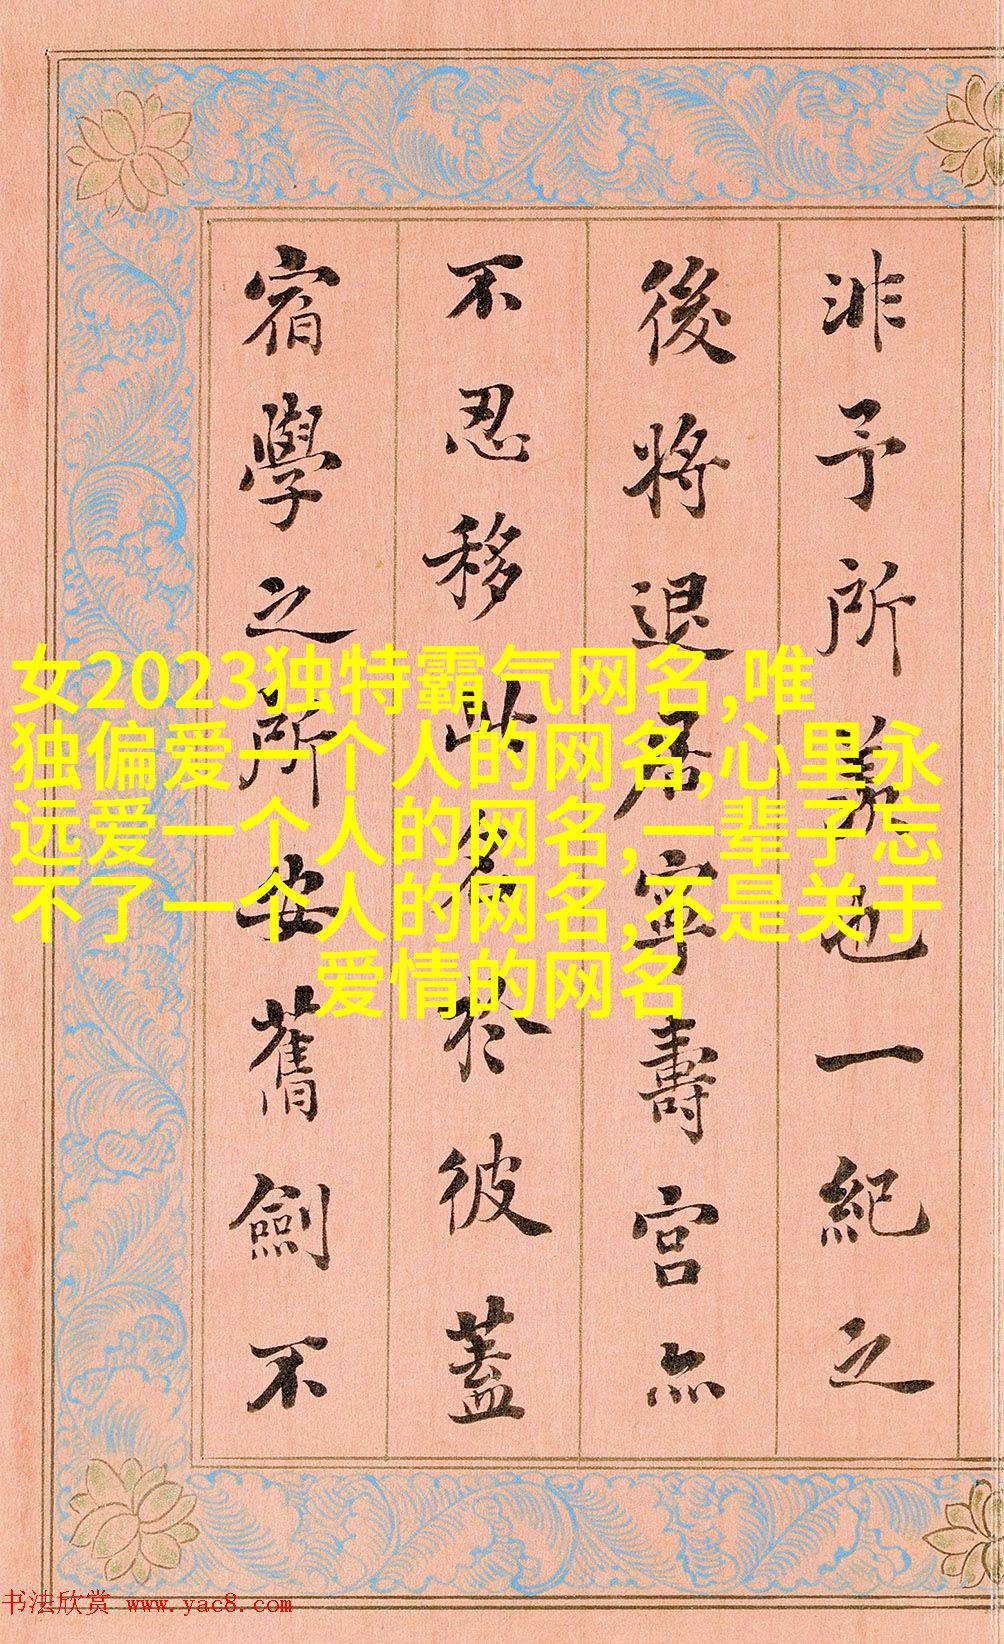 非予所也一紀之
後將退居寧壽宮亦
不忍移此名於彼蓋
宿學之所安舊劍不
女2023独特霸气网名,唯
独偏爱一个人的网名,心里永
远爱一个人的网名,一辈子忘
不了一个人的网名,不是关于
爱情的网名
书法欣赏 www.yac8.com